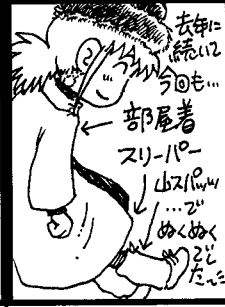 去年に
続いて
今回も…
部屋着
スリーパー
山スパッツ
…で
ぬくぬく
でし
た…